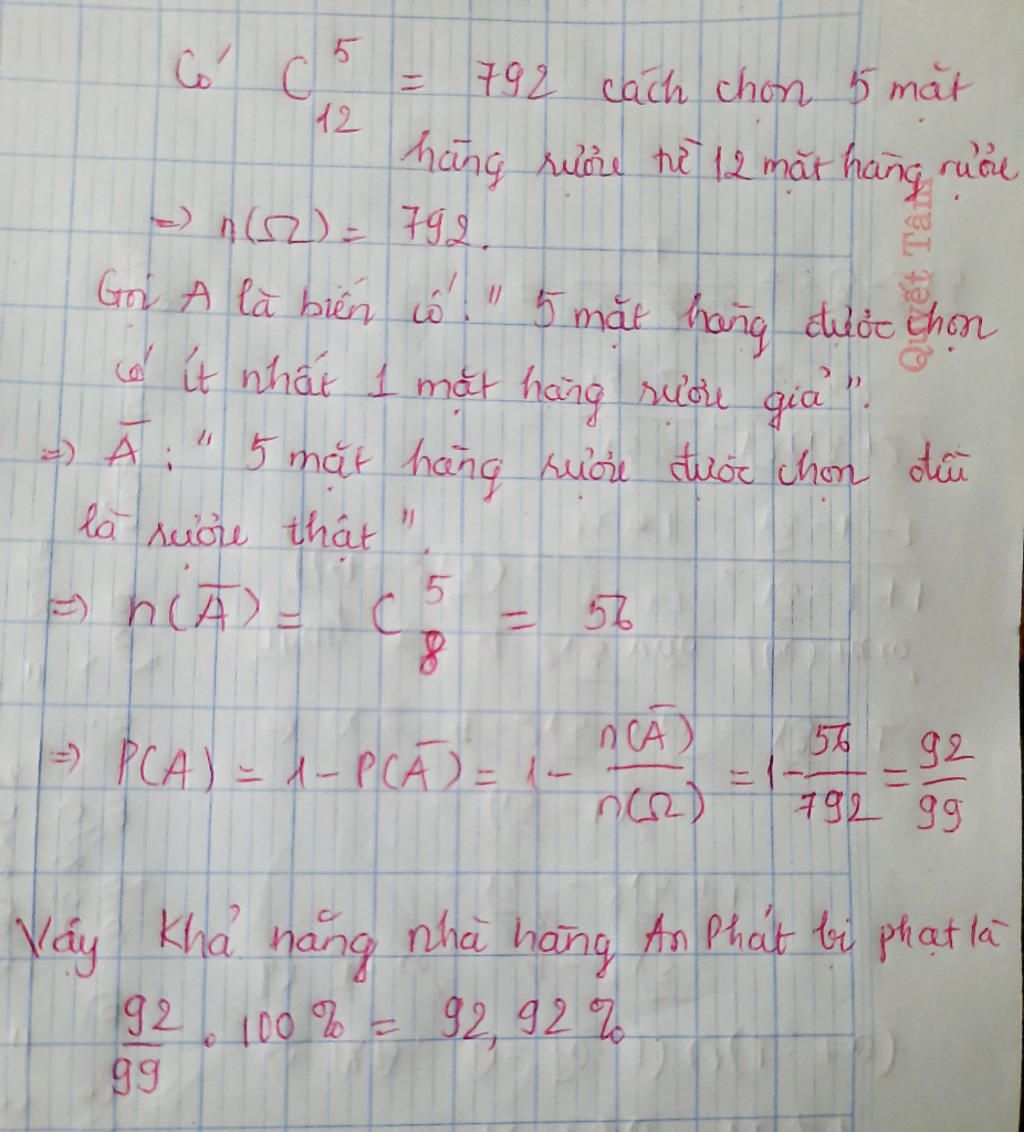 Có C⁵₁₂ = 792 cách chọn 5 mặt
hàng rượu từ 12 mặt hàng rượu
=> n(Ω) = 792.
Gọi A là biến cố: " 5 mặt hàng được chọn
có ít nhất 1 mặt hàng rượu giả".
=> A̅ : " 5 mặt hàng rượu được chọn đều
là rượu thật ".
=> n(A̅) = C⁵₈ = 56
=> P(A) = 1 - P(A̅) = 1 - n(A̅)/n(Ω) = 1 - 56/792 = 92/99
Vậy Khả năng nhà hàng An Phát bị phạt là
92/99 . 100 % = 92,92 %
Quyết Tâm